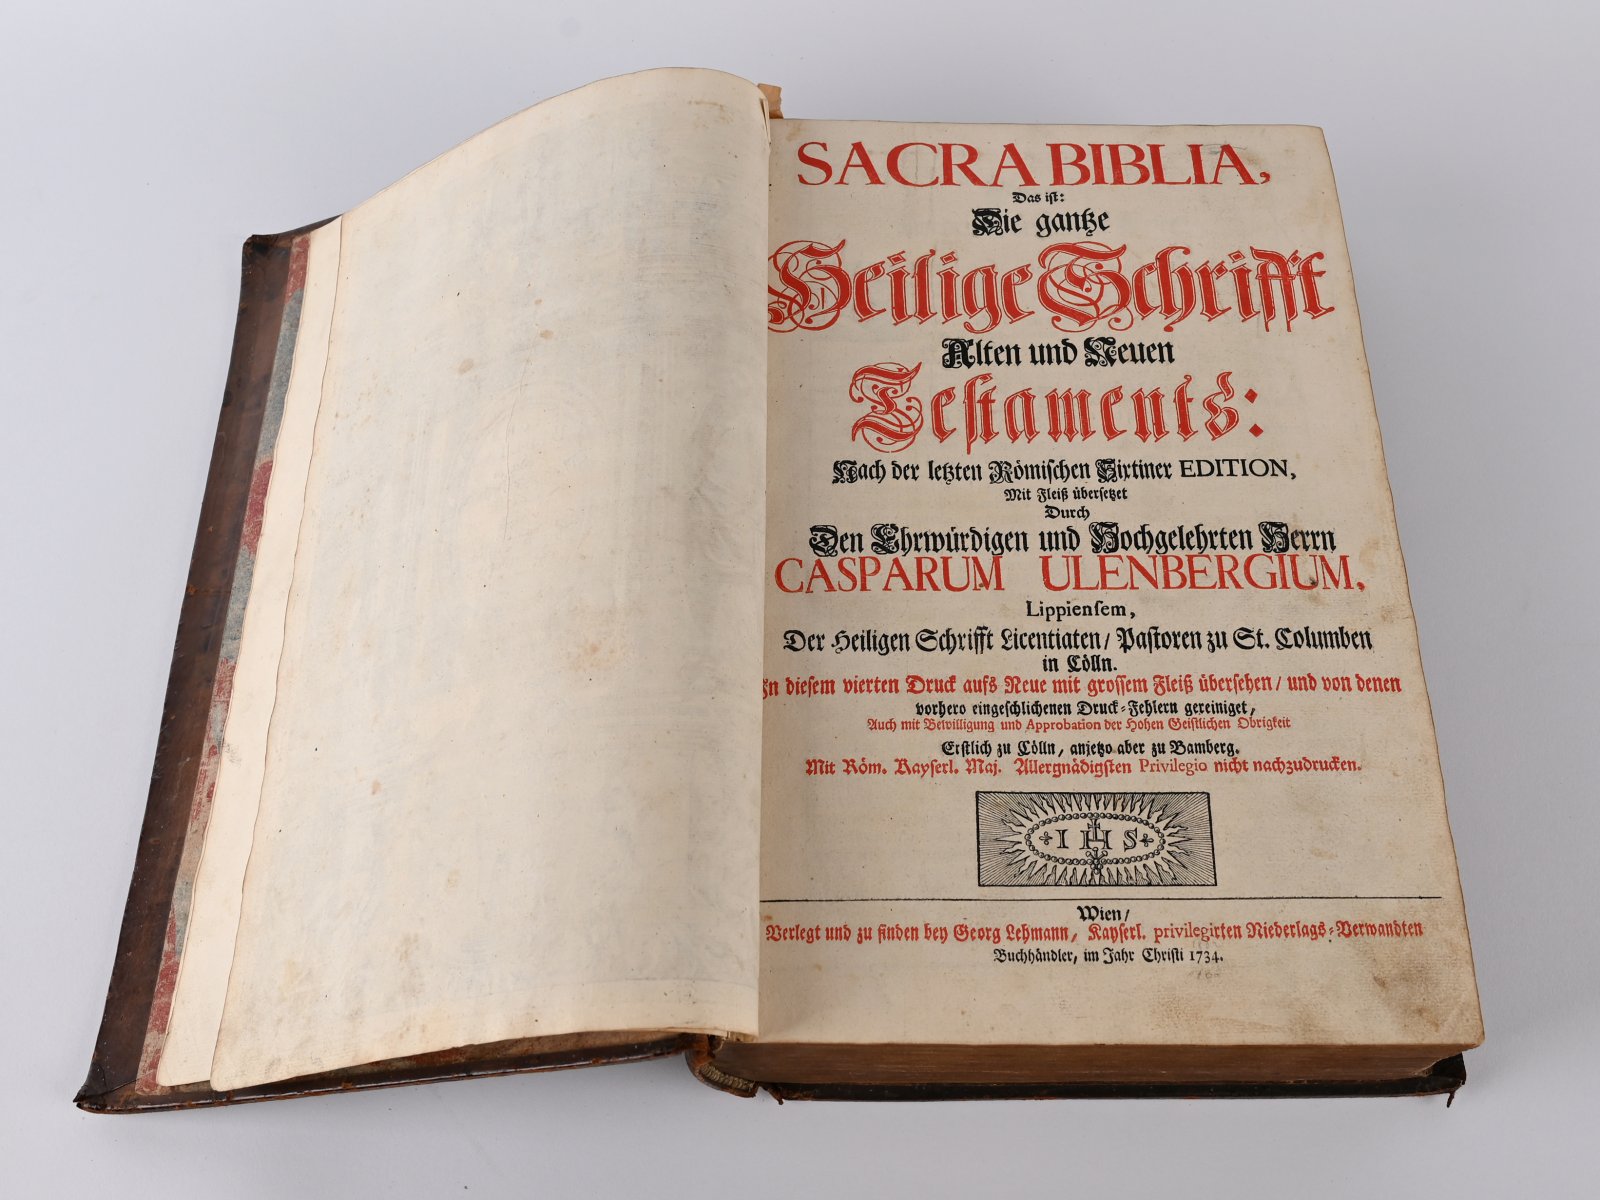 SACRA BIBLIA,
Das ist:
Die gantze
Heilige Schrifft
Alten und Neuen
Testaments:
Nach der letzten Römischen Sixtiner EDITION,
Mit Fleiß übersetzet
Durch
Den Ehrwürdigen und Hochgelehrten Herrn
CASPARUM ULENBERGIUM,
Lippiensem,
Der Heiligen Schrifft Licentiaten/ Pastoren zu St. Columben
in Cölln.
In diesem vierten Druck aufs Neue mit grossem Fleiß übersehen/ und von denen
vorhero eingeschlichenen Druck-Fehlern gereiniget,
Auch mit Bewilligung und Approbation der Hohen Geistlichen Obrigkeit
Erstlich zu Cölln, anjetzo aber zu Bamberg.
Mit Röm. Kayserl. Maj. Allergnädigsten Privilegio nicht nachzudrucken.
IHS
Wien/
Verlegt und zu finden bey Georg Lehmann, Kayserl. privilegirten Niederlags-Verwandten
Buchhändler, im Jahr Christi 1734.